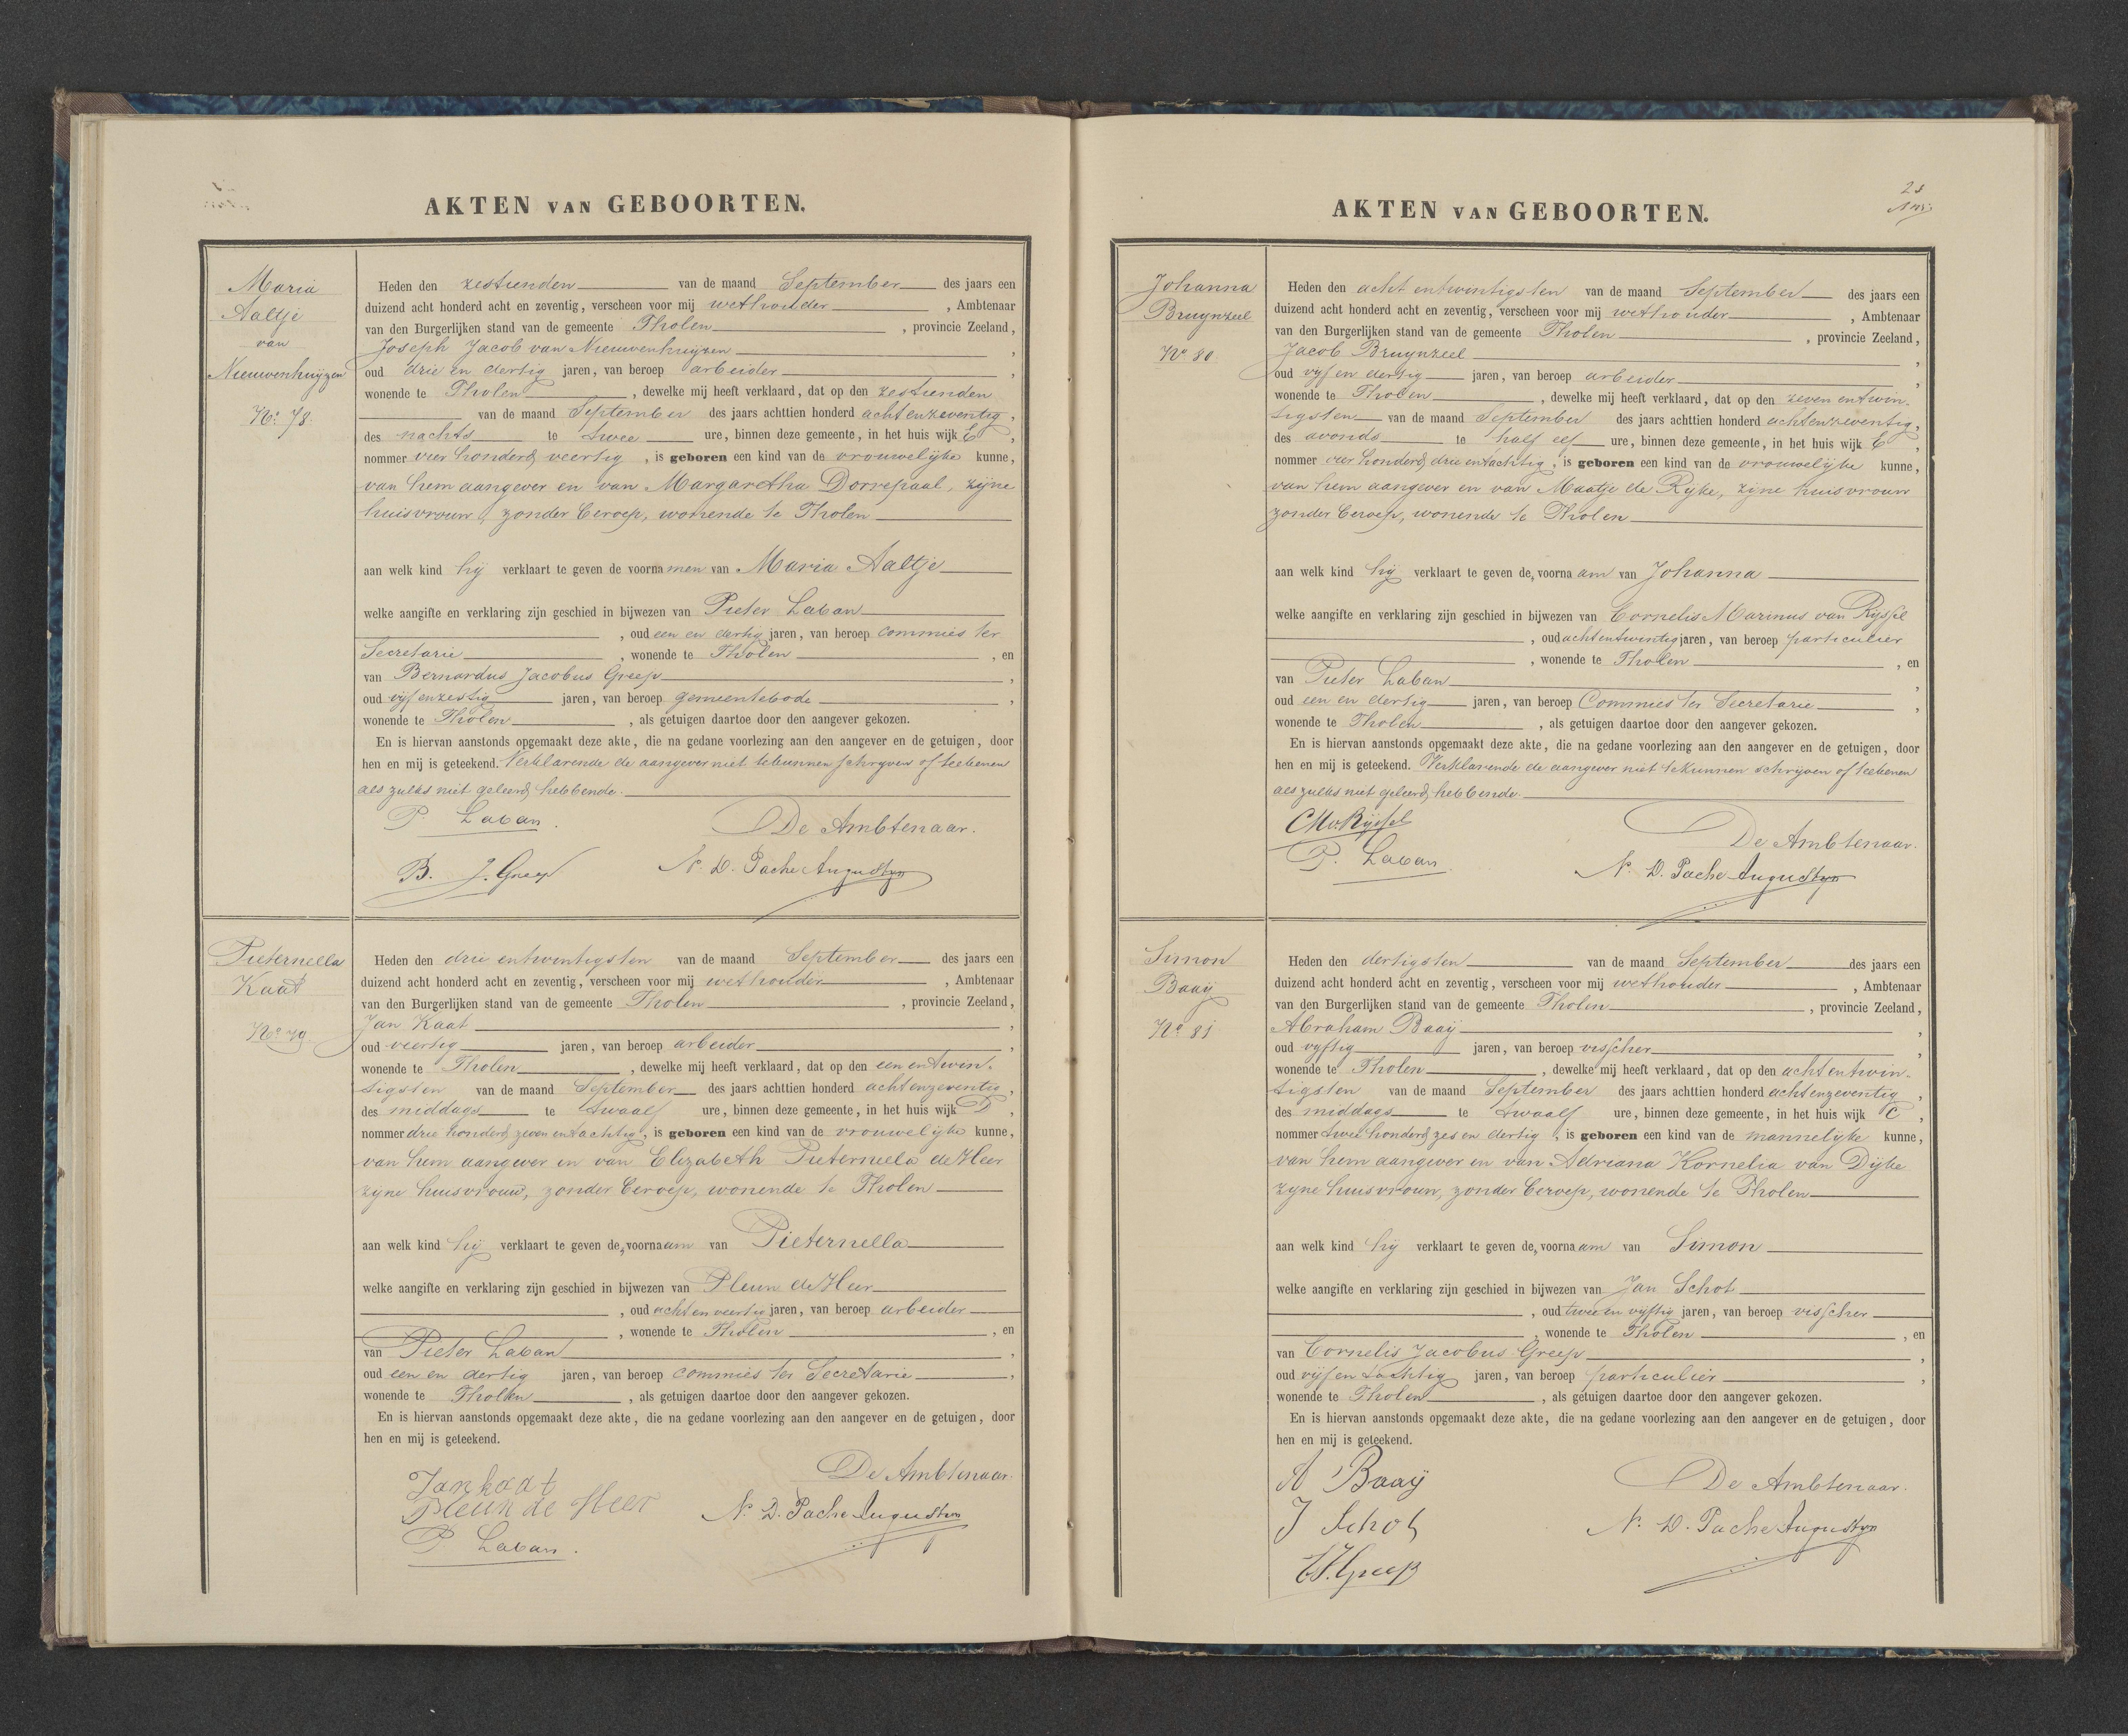 AKTEN VAN GEBOORTEN.
Maria
Aaltje
van
Nieuwenhuyzen
No. 78.
Heden den zestienden van de maand September des jaars een
duizend acht honderd acht en zeventig, verscheen voor mij wethouder, Ambtenaar
van den Burgerlijken stand van de gemeente Tholen, provincie Zeeland,
Joseph Jacob van Nieuwenhuyzen,
oud drie en dertig jaren, van beroep arbeider,
wonende te Tholen, dewelke mij heeft verklaard, dat op den zestienden
van de maand September des jaars achttien honderd achtenzeventig,
des nachts te twee ure, binnen deze gemeente, in het huis wijk E,
nommer vier honderd veertig, is geboren een kind van de vrouwelijke kunne,
van hem aangever en van Margaretha Dorrepaal, zijne
huisvrouw, zonder beroep, wonende te Tholen
aan welk kind hij verklaart te geven de voornamen van Maria Aaltje
welke aangifte en verklaring zijn geschied in bijwezen van Pieter Laban
, oud een en dertig jaren, van beroep commies ter
Secretarie, wonende te Tholen, en
van Bernardus Jacobus Greep,
oud vijfenzestig jaren, van beroep gemeentebode,
wonende te Tholen, als getuigen daartoe door den aangever gekozen.
En is hiervan aanstonds opgemaakt deze akte, die na gedane voorlezing aan den aangever en de getuigen, door
hen en mij is geteekend. Verklarende de aangever niet te kunnen schryven of teekenen
als zulks niet geleerd hebbende.
P. Laban.
De Ambtenaar.
B. J. Greep
N. D. Pache Augustyn
Pieternella
Kaat
No. 79.
Heden den drie entwintigsten van de maand September des jaars een
duizend acht honderd acht en zeventig, verscheen voor mij wethouder, Ambtenaar
van den Burgerlijken stand van de gemeente Tholen, provincie Zeeland,
Jan Kaat,
oud veertig jaren, van beroep arbeider,
wonende te Tholen, dewelke mij heeft verklaard, dat op den een entwin-
tigsten van de maand September des jaars achttien honderd achtenzeventig,
des middags te twaalf ure, binnen deze gemeente, in het huis wijk D,
nommer drie honderd zeven entachtig, is geboren een kind van de vrouwelijke kunne,
van hem aangever en van Elizabeth Pieternella de Heer
zijne huisvrouw, zonder beroep, wonende te Tholen
aan welk kind hij verklaart te geven de, voornaam van Pieternella
welke aangifte en verklaring zijn geschied in bijwezen van Pleun de Heer
, oud acht en veertig jaren, van beroep arbeider
, wonende te Tholen, en
van Pieter Laban,
oud een en dertig jaren, van beroep commies ter Secretarie,
wonende te Tholen, als getuigen daartoe door den aangever gekozen.
En is hiervan aanstonds opgemaakt deze akte, die na gedane voorlezing aan den aangever en de getuigen, door
hen en mij is geteekend.
Jan kaat
De Ambtenaar.
Pleun de Heer
N. D. Pache Augustyn
P Laban.
AKTEN VAN GEBOORTEN.
Johanna
Bruynzeel
No. 80.
Heden den acht entwintigsten van de maand September des jaars een
duizend acht honderd acht en zeventig, verscheen voor mij wethouder, Ambtenaar
van den Burgerlijken stand van de gemeente Tholen, provincie Zeeland,
Jacob Bruynzeel,
oud vyf en dertig jaren, van beroep arbeider,
wonende te Tholen, dewelke mij heeft verklaard, dat op den zeven entwin-
tigsten van de maand September des jaars achttien honderd achtenzeventig,
des avonds te half elf ure, binnen deze gemeente, in het huis wijk E,
nommer vier honderd drie entachtig, is geboren een kind van de vrouwelijke kunne,
van hem aangever en van Maatje de Rijke, zijne huisvrouw
zonder beroep, wonende te Tholen
aan welk kind hij verklaart te geven de, voornaam van Johanna
welke aangifte en verklaring zijn geschied in bijwezen van Cornelis Marinus van Rijssel
, oud achtentwintig jaren, van beroep particulier
, wonende te Tholen, en
van Pieter Laban,
oud een en dertig jaren, van beroep Commies ter Secretarie,
wonende te Tholen, als getuigen daartoe door den aangever gekozen.
En is hiervan aanstonds opgemaakt deze akte, die na gedane voorlezing aan den aangever en de getuigen, door
hen en mij is geteekend. Verklarende de aangever niet te kunnen schrijven of teekenen
als zulks niet geleerd hebbende.
CMvRijssel
De Ambtenaar.
P. Laban
N. D. Pache Augustyn
Simon
Baaij
No. 81
Heden den dertigsten van de maand September des jaars een
duizend acht honderd acht en zeventig, verscheen voor mij wethouder, Ambtenaar
van den Burgerlijken stand van de gemeente Tholen, provincie Zeeland,
Abraham Baaij,
oud vyftig jaren, van beroep visscher,
wonende te Tholen, dewelke mij heeft verklaard, dat op den acht entwin-
tigsten van de maand September des jaars achttien honderd achtenzeventig,
des middags te twaalf ure, binnen deze gemeente, in het huis wijk C,
nommer twee honderd zes en dertig, is geboren een kind van de mannelijke kunne,
van hem aangever en van Adriana Kornelia van Dijke
zijne huisvrouw, zonder beroep, wonende te Tholen
aan welk kind hij verklaart te geven de, voornaam van Simon
welke aangifte en verklaring zijn geschied in bijwezen van Jan Schot
, oud twee en vyftig jaren, van beroep visscher
, wonende te Tholen, en
van Cornelis Jacobus Greep,
oud vijf en tachtig jaren, van beroep particulier,
wonende te Tholen, als getuigen daartoe door den aangever gekozen.
En is hiervan aanstonds opgemaakt deze akte, die na gedane voorlezing aan den aangever en de getuigen, door
hen en mij is geteekend.
A Baaij
De Ambtenaar.
J Schot
N. D. Pache Augustyn
CJ. Greep